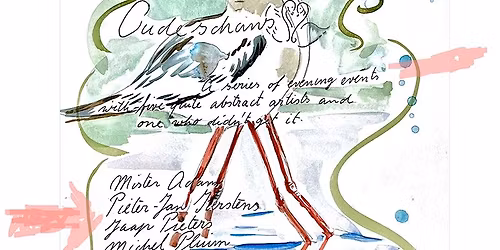 Oudeschans
A series of evening events
with five quite abstract artists and
one who didn't get it.
Mister Adams
Pieter-Jan Kerstens
Jaap Pieters
Michel Pluim